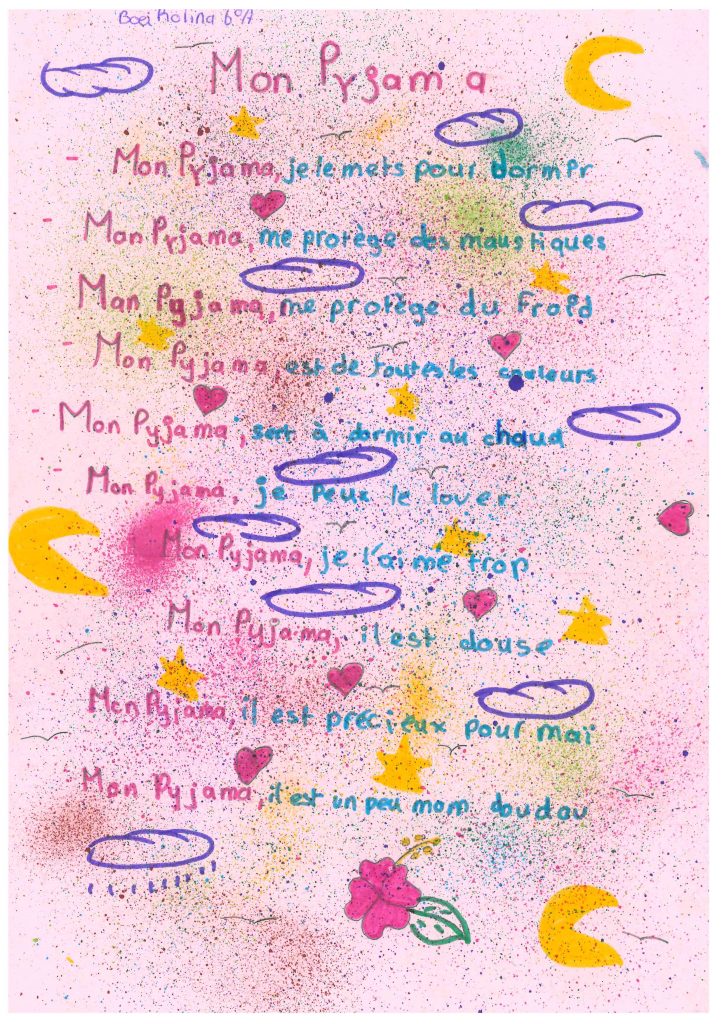 Boei Rolina 6°A
Mon Pyjam a
- Mon Pyjama, je le mets pour dormir
- Mon Pyjama, me protège des moustiques
- Mon Pyjama, me protège du froid
- Mon Pyjama, est de toutes les couleurs
- Mon Pyjama, sert à dormir au chaud
- Mon Pyjama, je peux le laver
Mon Pyjama, je l'aime trop
Mon Pyjama, il est douse
Mon Pyjama, il est précieux pour moi
Mon Pyjama, il est un peu mom doudou